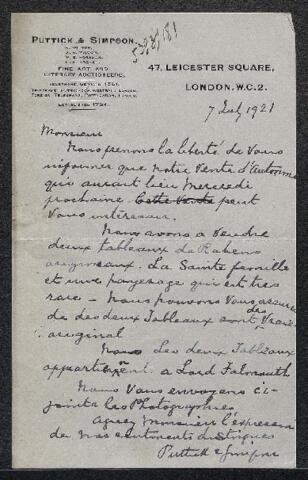 PUTTICK & SIMPSON.
FINE ART AND
LITERARY AUCTIONEERS.
47, LEICESTER SQUARE,
LONDON. W.C.2.
7 1921
Monsieur
Nous prenons la liberté de Vous
informer que notre Vente d'Automne
qui aurait lieu Mercredi
prochaine Cette Vente peut
Vous intéresser.
Nous avons a Vendre
deux tableaux de Rubens
La Sainte famille
et une paysage qui est tres
rare - Nous pouvons Vous assurer
de des deux Tableaux sont des Vrais
original
Nous Les deux Tableaux
appartiennent a Lord Falmouth
Nous Vous envoyons ci-
jointe les Photographies
Agreez Monsieur l'expression
de nos sentiments distingués
Puttick & Simpson